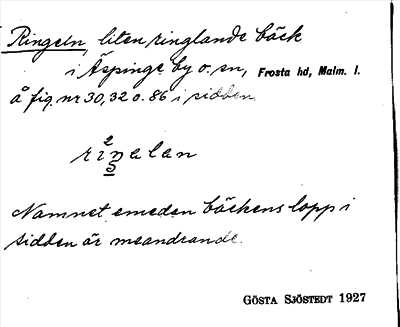 Ringeln, liten ringlande bäck
i Äspinge by o. sn, Frosta hd, Malm. l.
å fig. nr 30, 32 o. 86 i sidden.
Namnet emedan bäckens lopp i
sidden är meandrande.
GÖSTA SJÖSTEDT 1927